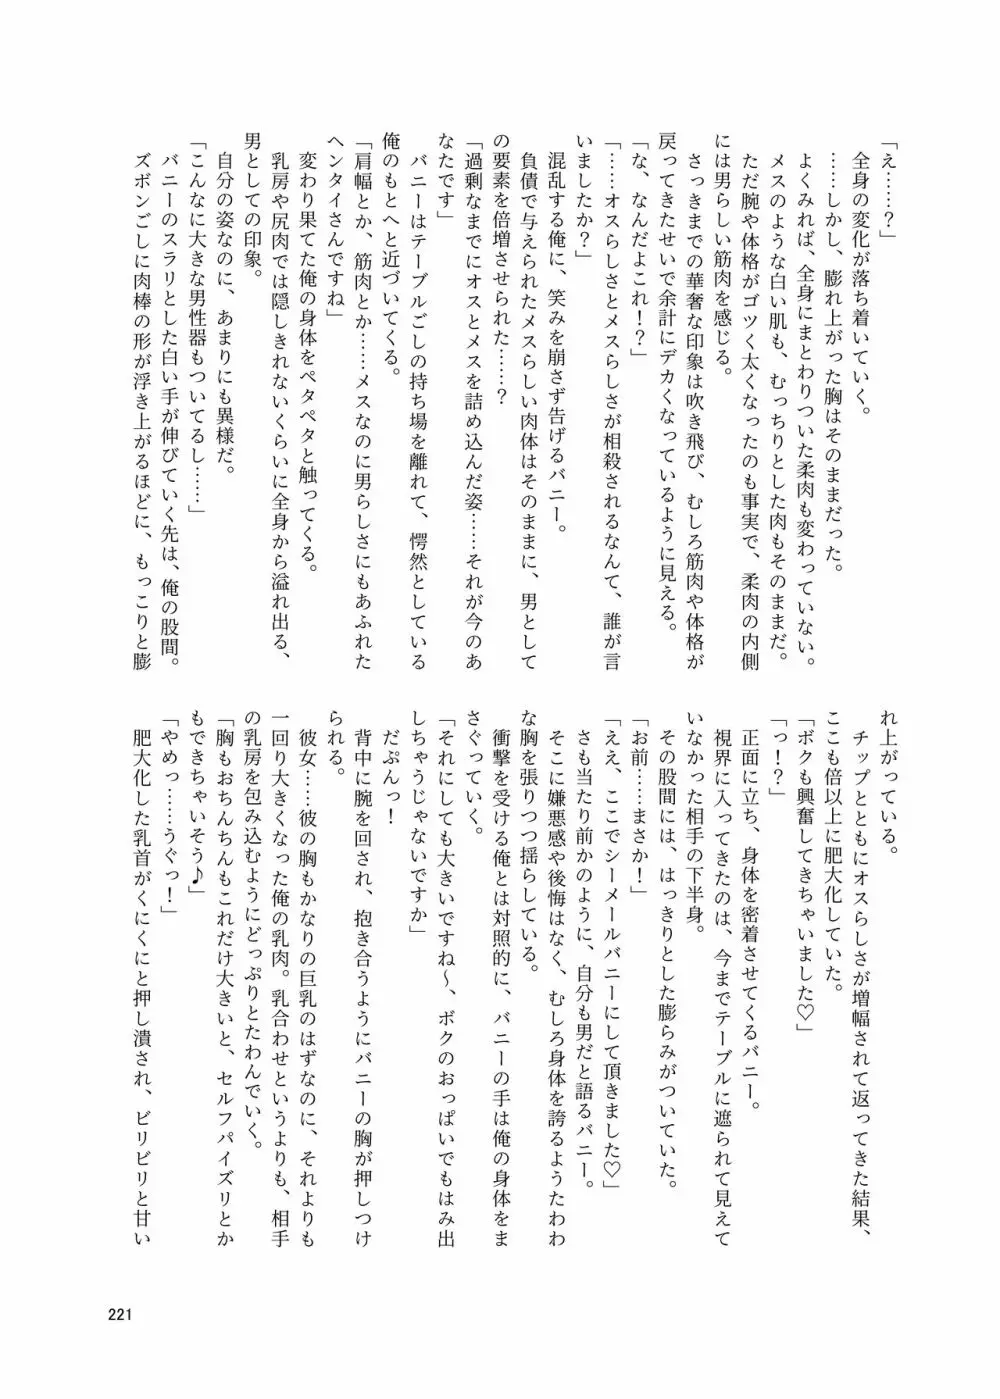 「え……？」
　全身の変化が落ち着いていく。
　……しかし、膨れ上がった胸はそのままだった。
　よくみれば、全身にまとわりついた柔肉も変わっていない。
　メスのような白い肌も、むっちりとした肉もそのままだ。
　ただ腕や体格がゴツく太くなったのも事実で、柔肉の内側
には男らしい筋肉を感じる。
　さっきまでの華奢な印象は吹き飛び、むしろ筋肉や体格が
戻ってきたせいで余計にデカくなっているように見える。
「な、なんだよこれ！？」
「……オスらしさとメスらしさが相殺されるなんて、誰が言
いましたか？」
　混乱する俺に、笑みを崩さず告げるバニー。
　負債で与えられたメスらしい肉体はそのままに、男として
の要素を倍増させられた……？
「過剰なまでにオスとメスを詰め込んだ姿……それが今のあ
なたです」
　バニーはテーブルごしの持ち場を離れて、愕然としている
俺のもとへと近づいてくる。
「肩幅とか、筋肉とか……メスなのに男らしさにもあふれた
ヘンタイさんですね」
　変わり果てた俺の身体をペタペタと触ってくる。
　乳房や尻肉では隠しきれないくらいに全身から溢れ出る、
男としての印象。
　自分の姿なのに、あまりにも異様だ。
「こんなに大きな男性器もついてるし……」
　バニーのスラリとした白い手が伸びていく先は、俺の股間。
　ズボンごしに肉棒の形が浮き上がるほどに、もっこりと膨
れ上がっている。
　チップとともにオスらしさが増幅されて返ってきた結果、
ここも倍以上に肥大化していた。
「ボクも興奮してきちゃいました♡」
「っ！？」
　正面に立ち、身体を密着させてくるバニー。
　視界に入ってきたのは、今までテーブルに遮られて見えて
いなかった相手の下半身。
　その股間には、はっきりとした膨らみがついていた。
「お前……まさか！」
「ええ、ここでシーメールバニーにして頂きました♡」
　さも当たり前かのように、自分も男だと語るバニー。
　そこに嫌悪感や後悔はなく、むしろ身体を誇るようたわわ
な胸を張りつつ揺らしている。
　衝撃を受ける俺とは対照的に、バニーの手は俺の身体をま
さぐっていく。
「それにしても大きいですね～、ボクのおっぱいでもはみ出
しちゃうじゃないですか」
　だぷんっ！
　背中に腕を回され、抱き合うようにバニーの胸が押しつけ
られる。
　彼女……彼の胸もかなりの巨乳のはずなのに、それよりも
一回り大きくなった俺の乳肉。乳合わせというよりも、相手
の乳房を包み込むようにどっぷりとたわんでいく。
「胸もおちんちんもこれだけ大きいと、セルフパイズリとか
もできちゃいそう♪」
「やめっ……うぐっ！」
　肥大化した乳首がくにくにと押し潰され、ビリビリと甘い
221